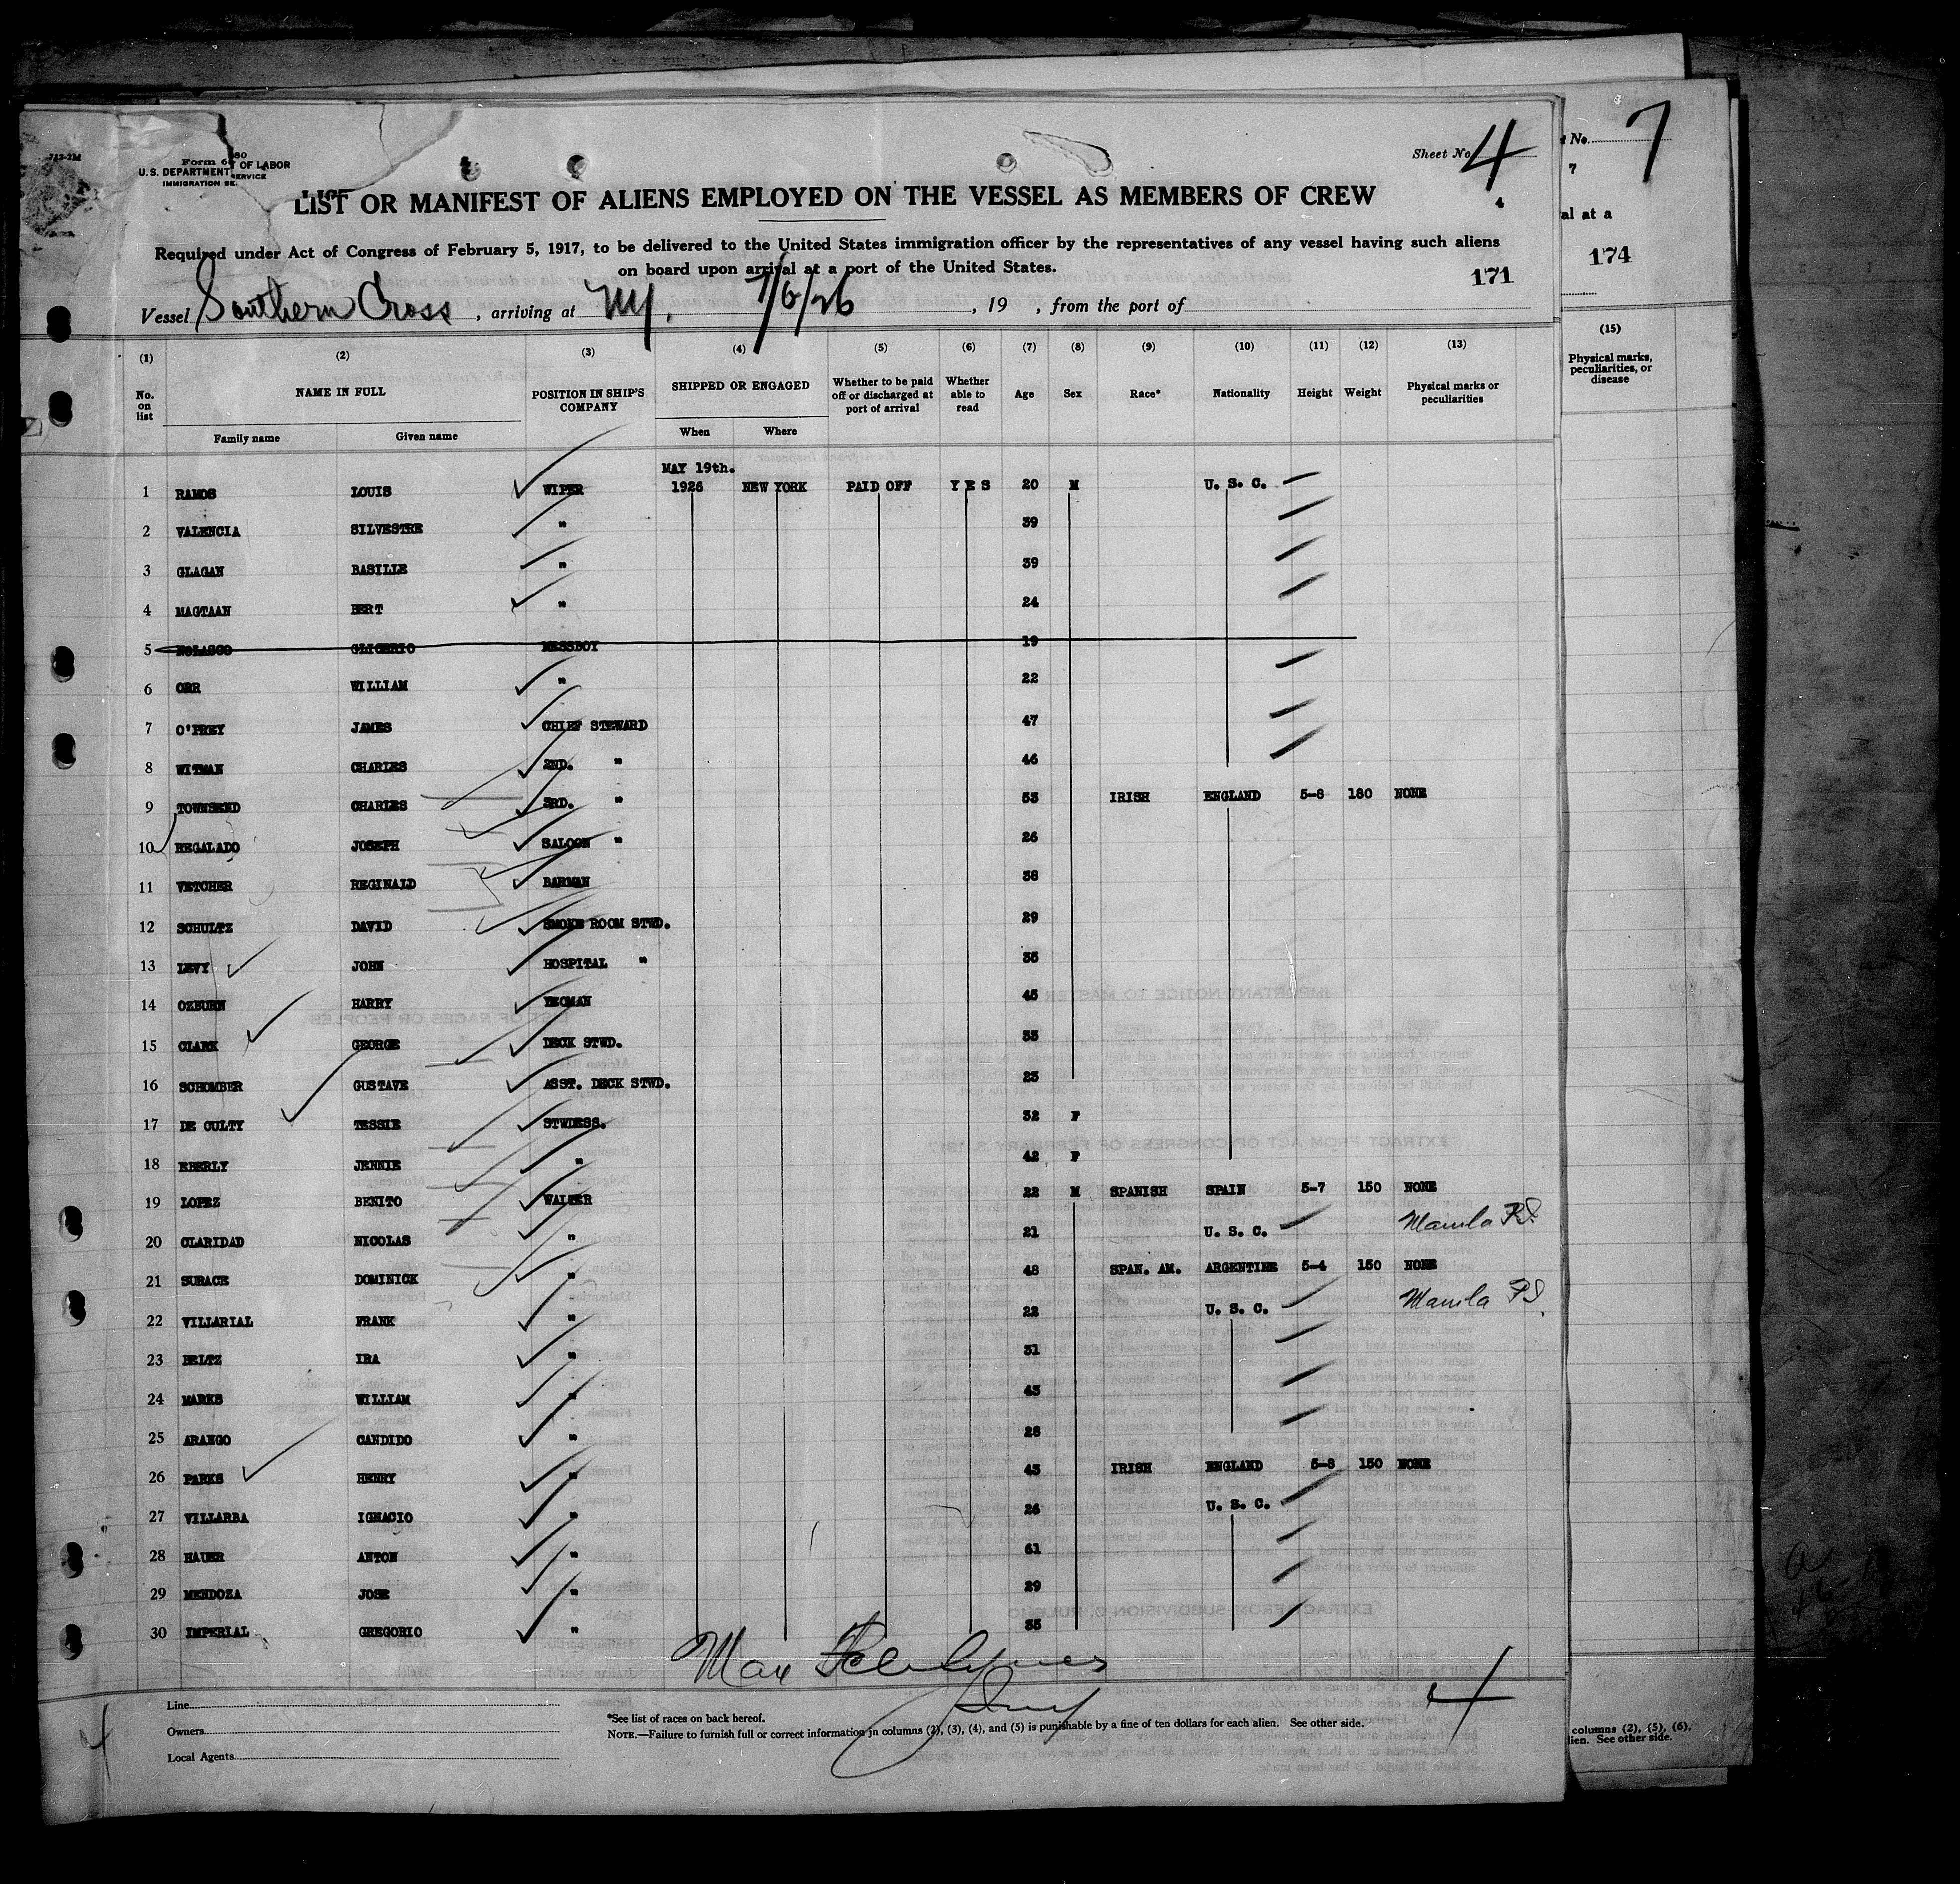 742-2M
Form 680
U.S. DEPARTMENT OF LABOR
IMMIGRATION SERVICE
Sheet No. 4
4
LIST OR MANIFEST OF ALIENS EMPLOYED ON THE VESSEL AS MEMBERS OF CREW
Required under Act of Congress of February 5, 1917, to be delivered to the United States immigration officer by the representatives of any vessel having such aliens
on board upon arrival at a port of the United States.
171
Vessel Southern Cross, arriving at NY. 7/6/26, 19 , from the port of
(1) (2) (3) (4) (5) (6) (7) (8) (9) (10) (11) (12) (13)
No. on list NAME IN FULL POSITION IN SHIP'S COMPANY SHIPPED OR ENGAGED Whether to be paid off or discharged at port of arrival Whether able to read Age Sex Race* Nationality Height Weight Physical marks or peculiarities
Family name Given name When Where
MAY 19th.
1 RAMOS LOUIS WIPER 1926 NEW YORK PAID OFF YES 20 M U. S. C.
2 VALENCIA SILVESTRE " 39
3 GLAGAN BASILIE " 39
4 MAGTAAN BERT " 24
5 NOLASCO GLICERIO MESSBOY 19
6 ORR WILLIAM " 22
7 O'PREY JAMES CHIEF STEWARD 47
8 WITMAN CHARLES 2ND. " 46
9 TOWNSEND CHARLES 3RD. " 53 IRISH ENGLAND 5-8 180 NONE
10 REGALADO JOSEPH SALOON " 26
11 VETCHER REGINALD BARMAN 38
12 SCHULTZ DAVID SMOKE ROOM STWD. 29
13 LEVY JOHN HOSPITAL " 35
14 OZBURN HARRY YEOMAN 45
15 CLARK GEORGE DECK STWD. 33
16 SCHOMBER GUSTAVE ASST. DECK STWD. 23
17 DE CULTY TESSIE STWDESS. 32 F
18 EBERLY JENNIE " 42 F
19 LOPEZ BENITO WAITER 22 M SPANISH SPAIN 5-7 150 NONE
20 CLARIDAD NICOLAS " 21 U. S. C. Manila P.I.
21 SURACE DOMINICK " 48 SPAN. AM. ARGENTINE 5-4 150 NONE
22 VILLARIAL FRANK " 22 U. S. C. Manila P.I.
23 BELTZ IRA " 31
24 MARKS WILLIAM " 43
25 ARANGO CANDIDO " 28
26 PARKS HENRY " 43 IRISH ENGLAND 5-8 150 NONE
27 VILLARBA IGNACIO " 26 U. S. C.
28 HAUER ANTON " 61
29 MENDOZA JOSE " 29
30 IMPERIAL GREGORIO " 35
Max
4
4
Line
Owners
Local Agents
*See list of races on back hereof.
NOTE.—Failure to furnish full or correct information in columns (2), (3), (4), and (5) is punishable by a fine of ten dollars for each alien. See other side.
t No. 7
7
al at a
174
(15)
Physical marks, peculiarities, or disease
columns (2), (5), (6),
lien. See other side.